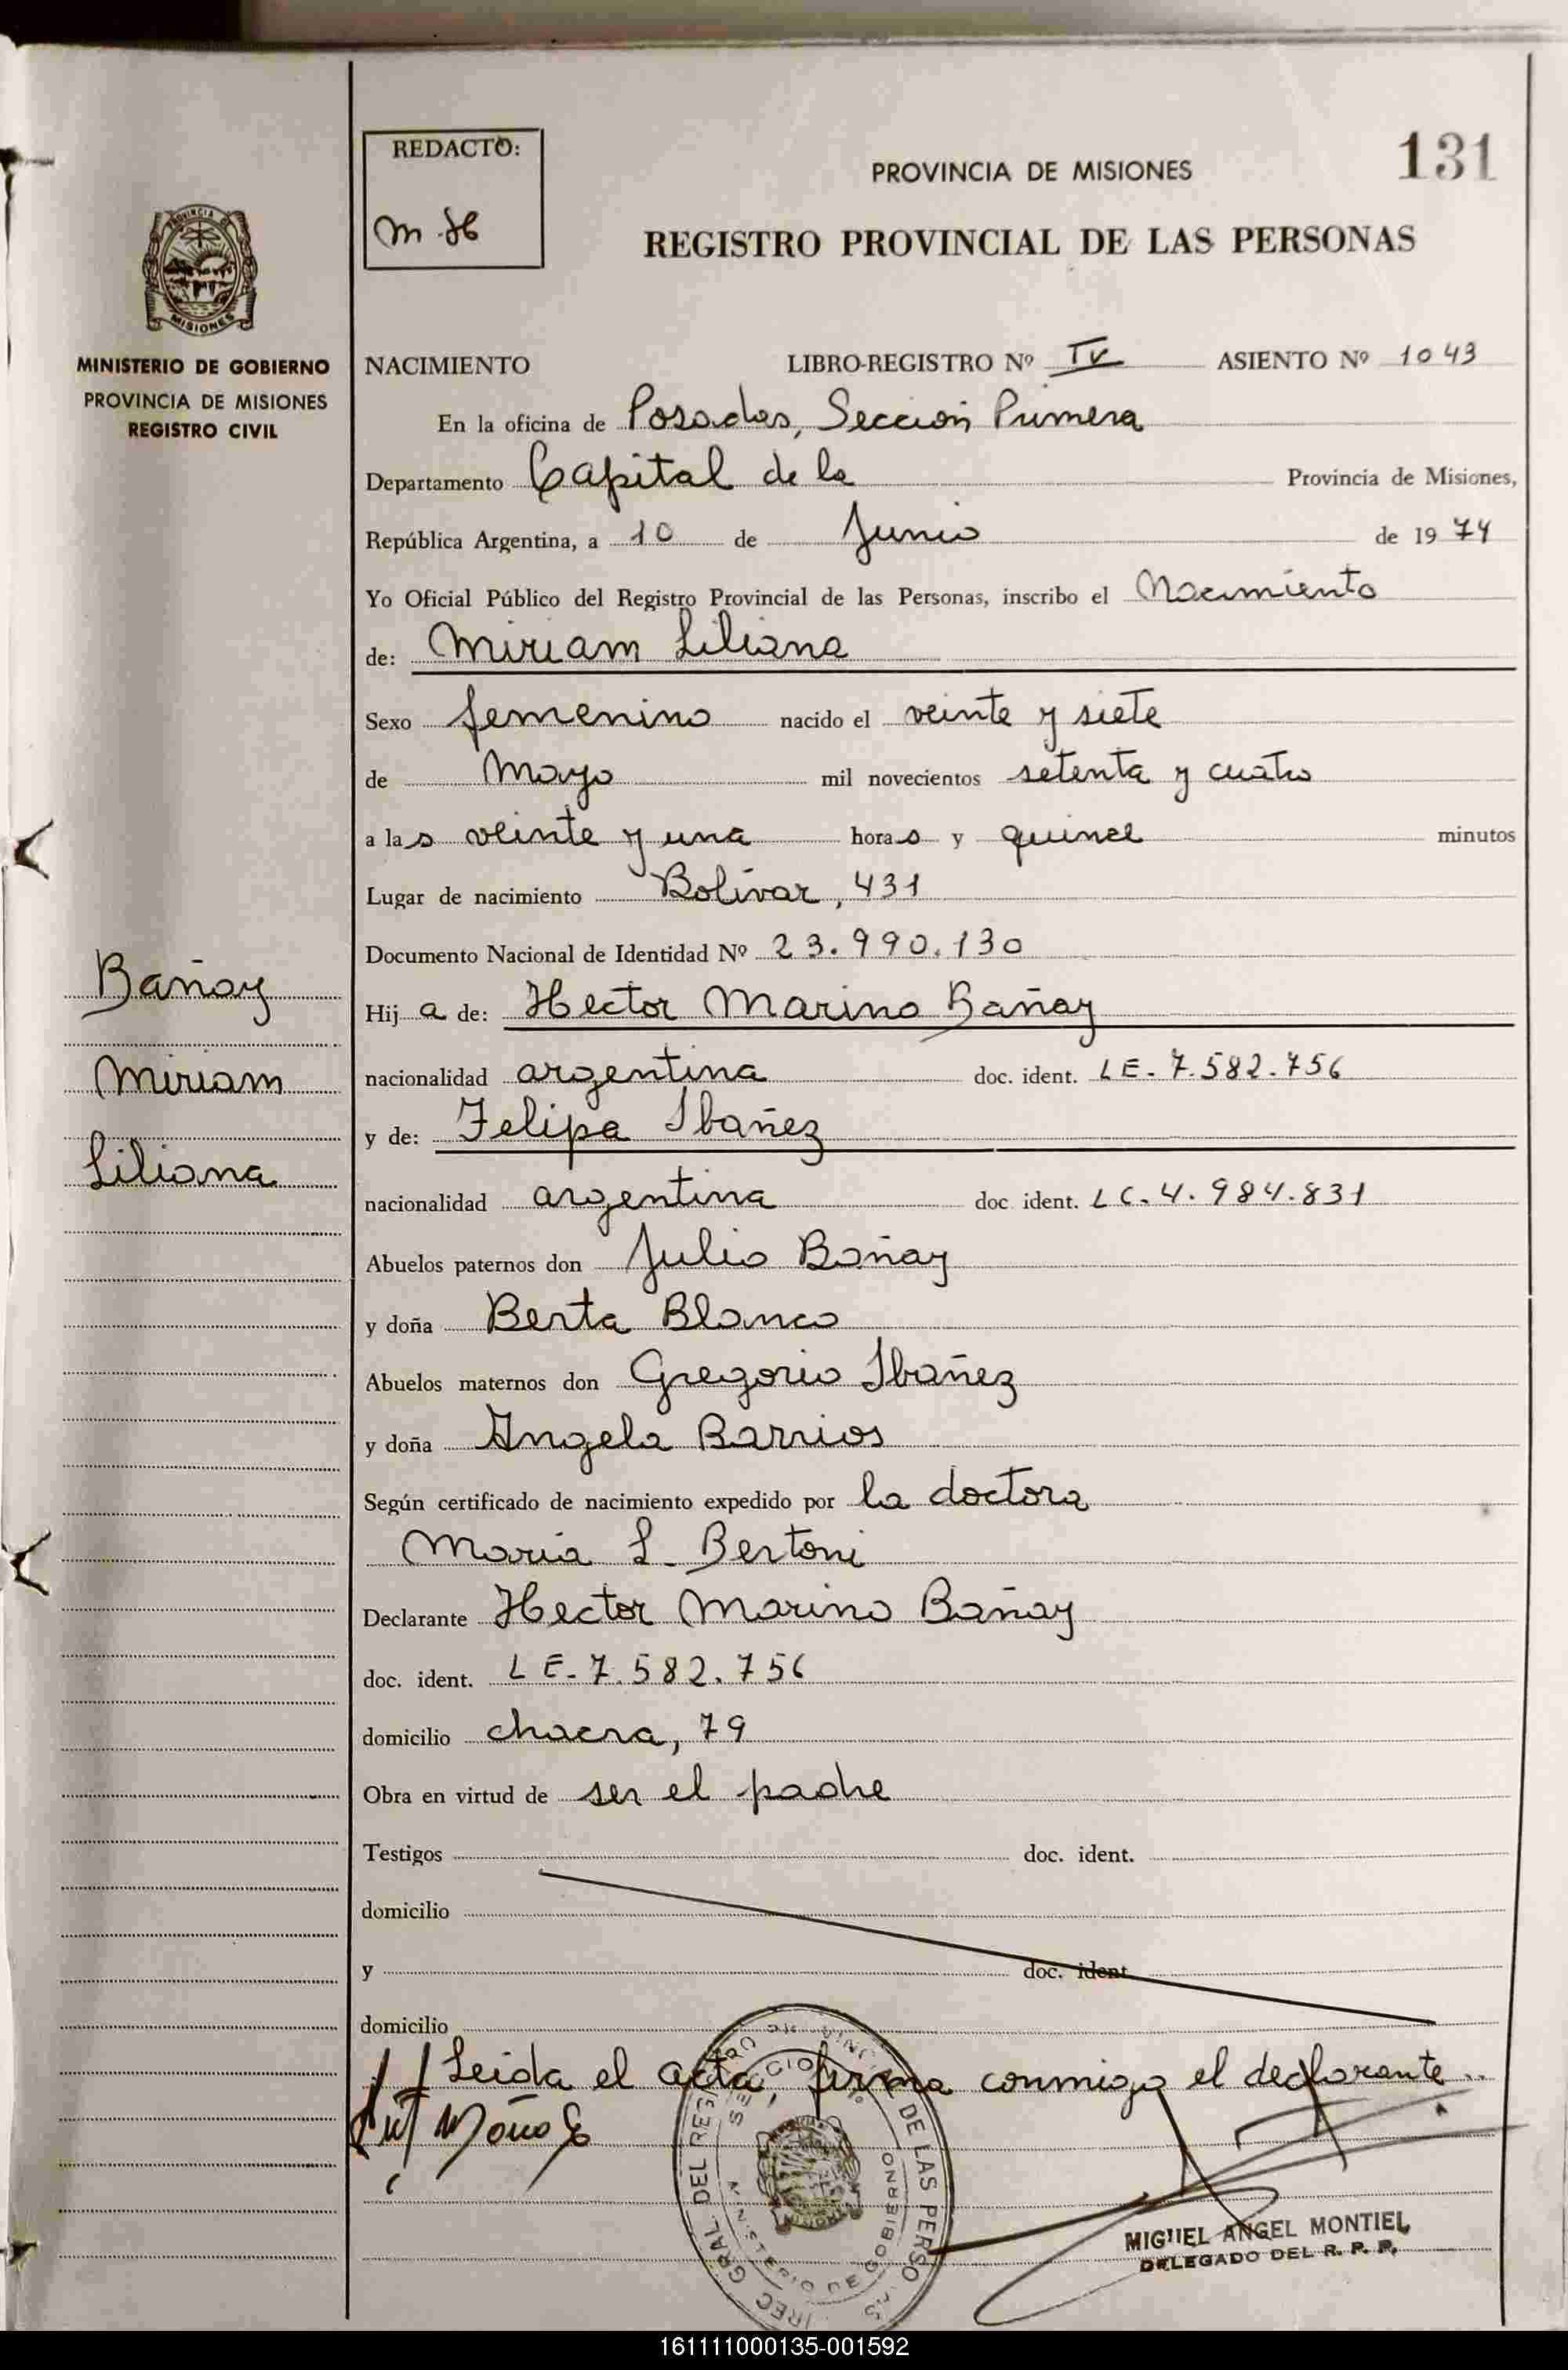 131
REDACTÓ:
PROVINCIA DE MISIONES
REGISTRO PROVINCIAL DE LAS PERSONAS
MISIONES
MINISTERIO DE GOBIERNO
PROVINCIA DE MISIONES
REGISTRO CIVIL
NACIMIENTO LIBRO-REGISTRO Nº IV ASIENTO Nº 1043
En la oficina de Posadas, Sección Primera
Departamento Capital de la Provincia de Misiones,
República Argentina, a 10 de Junio de 1974
Yo Oficial Público del Registro Provincial de las Personas, inscribo el Nacimiento
de: Miriam Liliana
Sexo femenino nacido el veinte y siete
de Mayo mil novecientos setenta y cuatro
a las veinte y una horas y quince minutos
Lugar de nacimiento Bolívar, 431
Documento Nacional de Identidad Nº 23.990.130
Bañay
Miriam
Liliana
Hija de: Hector Marino Bañay
nacionalidad argentina doc. ident. LE-7.582.756
y de: Felipa Ibañez
nacionalidad argentina doc. ident. LC-4.984.831
Abuelos paternos don Julio Bañay
y doña Berta Blanco
Abuelos maternos don Gregorio Ibañez
y doña Angela Barrios
Según certificado de nacimiento expedido por la doctora
Maria L. Bertoni
Declarante Hector Marino Bañay
doc. ident. LE-7.582.756
domicilio chacra, 79
Obra en virtud de ser el padre
Testigos doc. ident.
domicilio
y doc. ident.
domicilio
Leida el acta, firma conmigo el declarante..
MIGUEL ANGEL MONTIEL
DELEGADO DEL R. P. P.
161111000135-001592